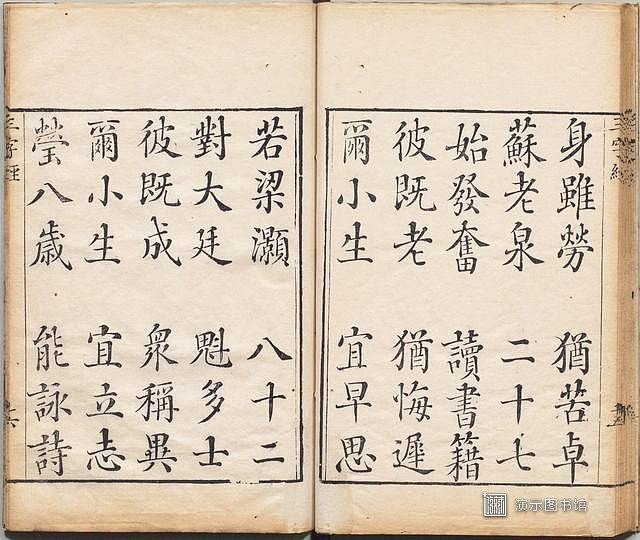 身雖勞 猶苦卓
蘇老泉 二十七
始發奮 讀書籍
彼既老 猶悔遲
爾小生 宜早思
若梁灝 八十二
對大廷 魁多士
彼既成 衆稱異
爾小生 宜立志
瑩八歲 能詠詩
三字經
六
演示图书馆